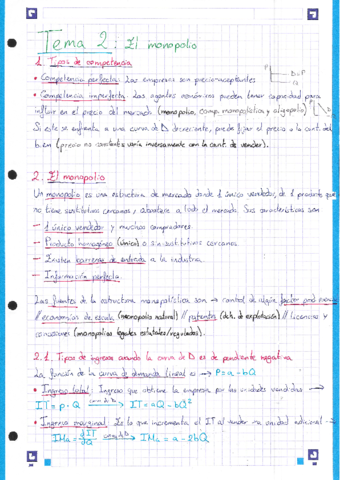 Tema 2: El monopolio
1. Tipos de competencia
• Competencia perfecta: Las empresas son precio-aceptantes
P D=P
• Competencia imperfecta: Los agentes económicos pueden tener capacidad para
influir en el precio del mercado (monopolio, comp. monopolística y oligopolio)
Si este se enfrenta a una curva de D decreciente, puede fijar el precio o la cant. del
bien (precio no constante varía inversamente con la cant. de vender).
2. El monopolio
Un monopolio es una estructura de mercado donde 1 único vendedor, de 1 producto que
no tiene sustitutivos cercanos, abastece a todo el mercado. Sus características son
— 1 único vendedor y muchos compradores
— Producto homogéneo (único) o sin sustitutivos cercanos
— Existen barreras de entrada a la industria
— Información perfecta
Las fuentes de la estructura monopolística son → control de algún factor prod
// economías de escala (monopolio natural) // patentes (dch. de explotación) // licencias y
concesiones (monopolios legales estatales/regulados).
2.1. Tipos de ingresos cuando la curva de D es de pendiente negativa
La función de la curva de demanda lineal es → P = a - bQ
• Ingreso total: Ingreso que obtiene la empresa por las unidades vendidas →
IT = p · Q → IT = aQ - bQ²
• Ingreso marginal: Es lo que incrementa el IT al vender una unidad adicional →
IMa = dIT/dQ → IMa = a - 2bQ